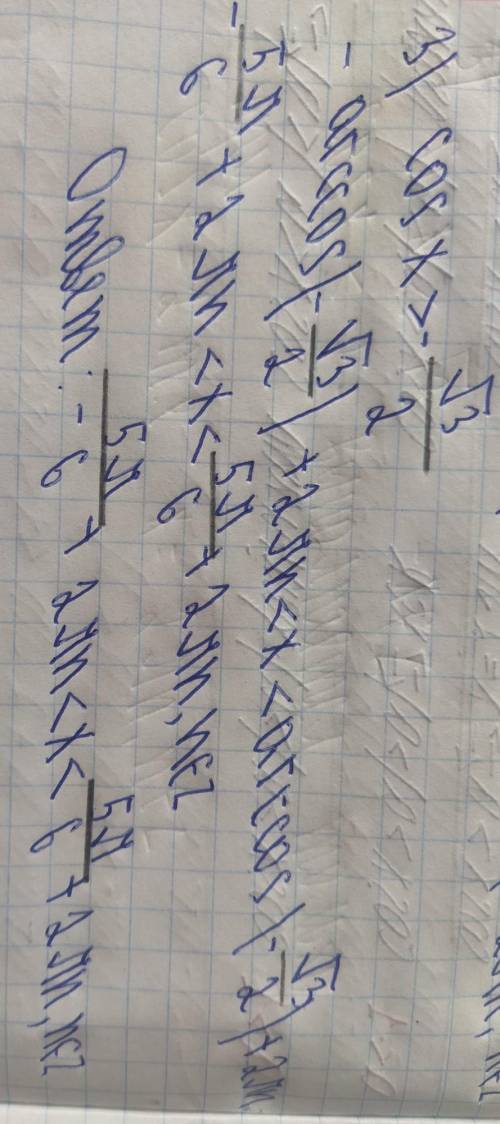 3) cos x > -√3/2
- arccos(-√3/2) + 2πn < x < arccos(-√3/2) + 2πn
-5π/6 + 2πn < x < 5π/6 + 2πn, n∈Z
Ответ: -5π/6 + 2πn < x < 5π/6 + 2πn, n∈Z